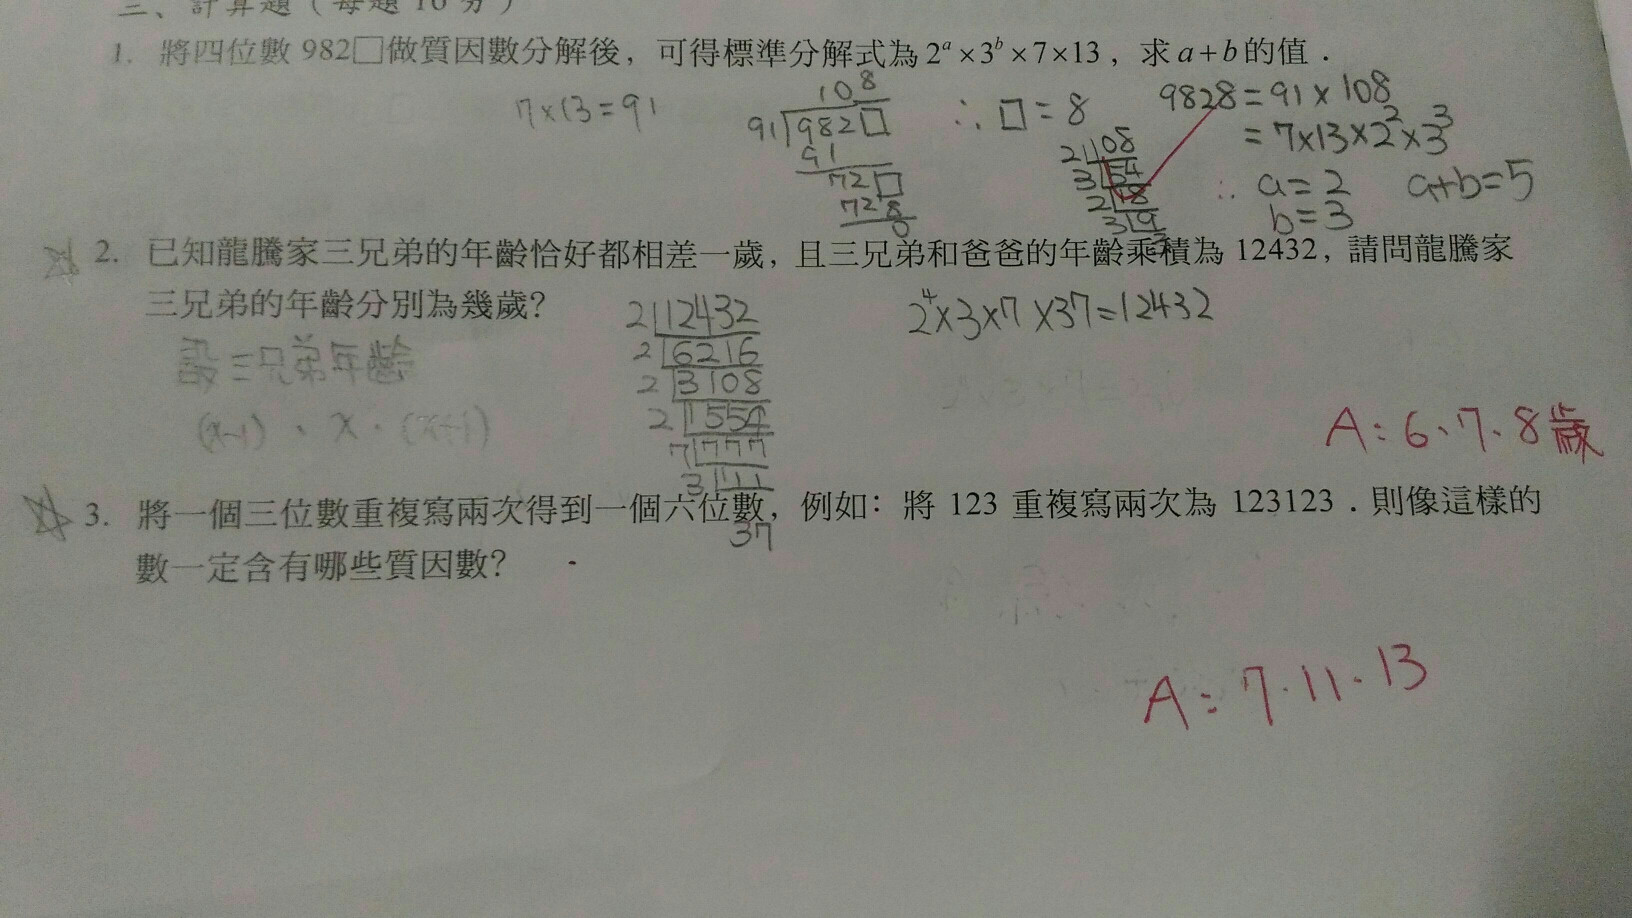 三、計算題（每題 10 分）
1. 將四位數 982□做質因數分解後，可得標準分解式為 2ᵃ×3ᵇ×7×13，求 a+b 的值．
7×13=91
108
91 982□
91
72□
728
0
∴ □=8
2 108
3 54
2 18
3 9
3
9828=91×108
=7×13×2²×3³
∴ a=2 a+b=5
b=3
☆ 2. 已知龍騰家三兄弟的年齡恰好都相差一歲，且三兄弟和爸爸的年齡乘積為 12432，請問龍騰家
三兄弟的年齡分別為幾歲？
設三兄弟年齡
(x-1)、x、(x+1)
2 12432
2 6216
2 3108
2 1554
7 777
3 111
37
2⁴×3×7×37=12432
A：6、7、8歲
☆ 3. 將一個三位數重複寫兩次得到一個六位數，例如：將 123 重複寫兩次為 123123．則像這樣的
數一定含有哪些質因數？
A：7．11．13